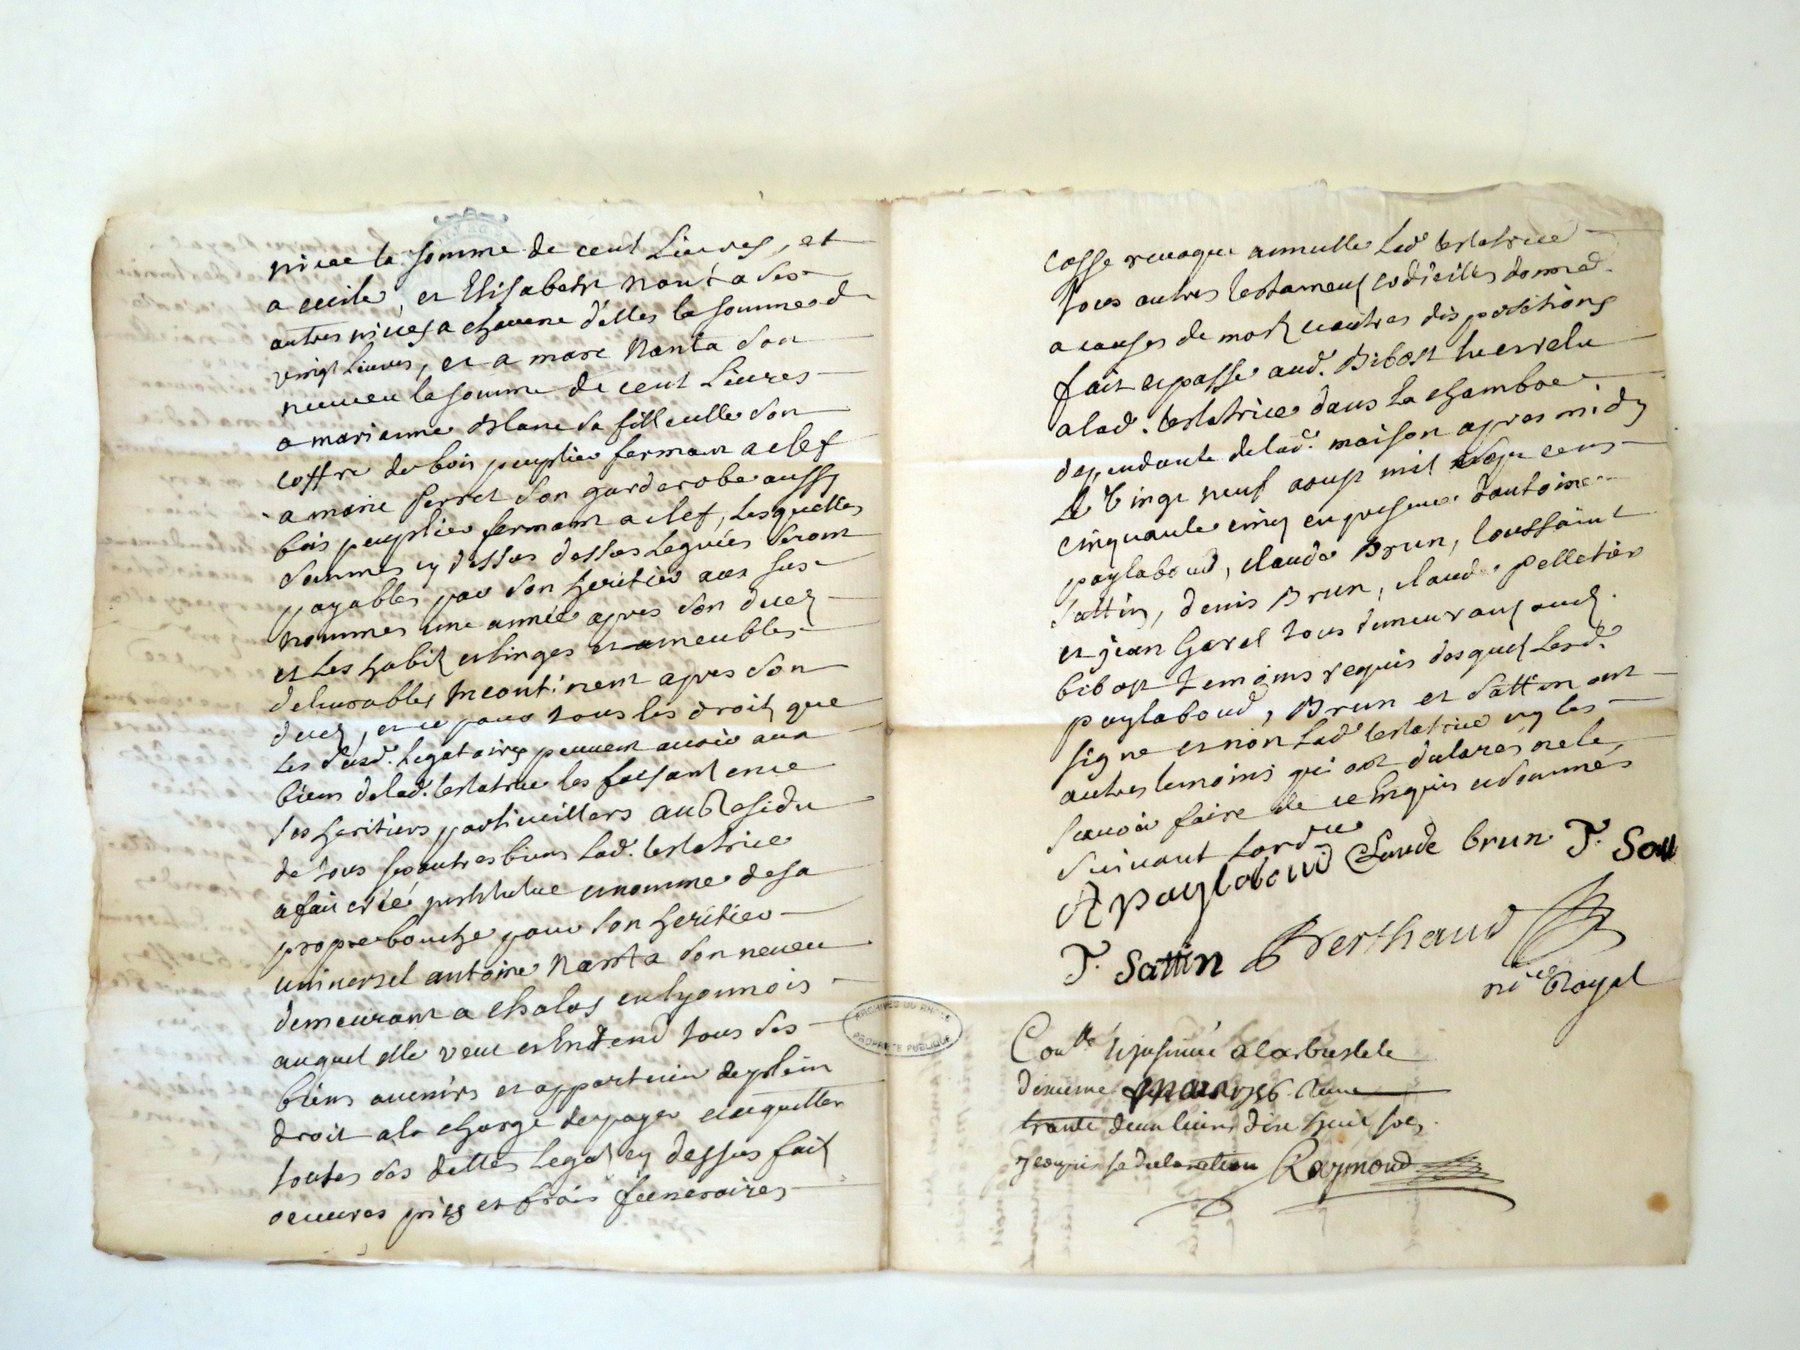 niece la somme de cent Livres, et
a cecile, et Elisabeth Nanta ses
autres niéces a chacune d'elles la somme de
vingt Livres, et a marc Nanta son
neuveu la somme de cent Livres
a marianne blanc sa filleulle son
coffre de bois peuplier fermant a clef
a marie Perret son garderobe aussy
bois peuplier fermant a clef, Lesquelles
sommes cy dessus dessus Leguées seront
payables par son heritier aux sus
nommés une année apres son decez
et Les habit et linges et ameubles
delivrables incontinent apres son
decez, et ce pour tous les droit que
Les susd. Legataires peuvent avoir aux
biens de lad. testatrice les faisant en ce
ses heritiers particuilliers au Residu
de tous ses autres biens Lad. testatrice
a fait créé institué et nommé de sa
propre bouche pour son heritier
universel antoine Nanta son neveu
demeurant a chalos en lyonnois
auquel elle veut et Entend tous ses
biens avenirs et appartenir de plein
droit a la charge de payer et acquitter
toutes ses dettes Legat cy dessus fait
oeuvres pies et frais funeraires
Casse revoque annulle Lad. testatrice
tous autres testament codicilles donna.
a causes de mort et autres dispositions
fait et passé aud. Bibost lu et relu
a lad. testatrice dans La chambre
dependante de lad. maison apres midy
Le Vingt neuf aoust mil sept cens
cinquante cinq en presence d'antoine
paylaboud, claude Brun, toussaint
Sattin, denis Brun, claude pelletier
et jean Garel tous demeurant aud.
bibost temoins requis desquel Lesd.
paylaboud, Brun et Sattin ont
signé et non Lad. testatrice ny les
autres temoins qui ont declarés ne le
scavoir faire de ce Enquis et sommés
suivant Lord.ce
A paylaboud Claude brun T. Satt
T. Sattin Berthaud
n.re Royal
Con.lé Et Insinué a Larbresle le
dixieme mars 1756
trante deux livres dix huit sols
y compris sa declaration Raymond
ARCHIVES DU RHONE
PROPRIÉTÉ PUBLIQUE